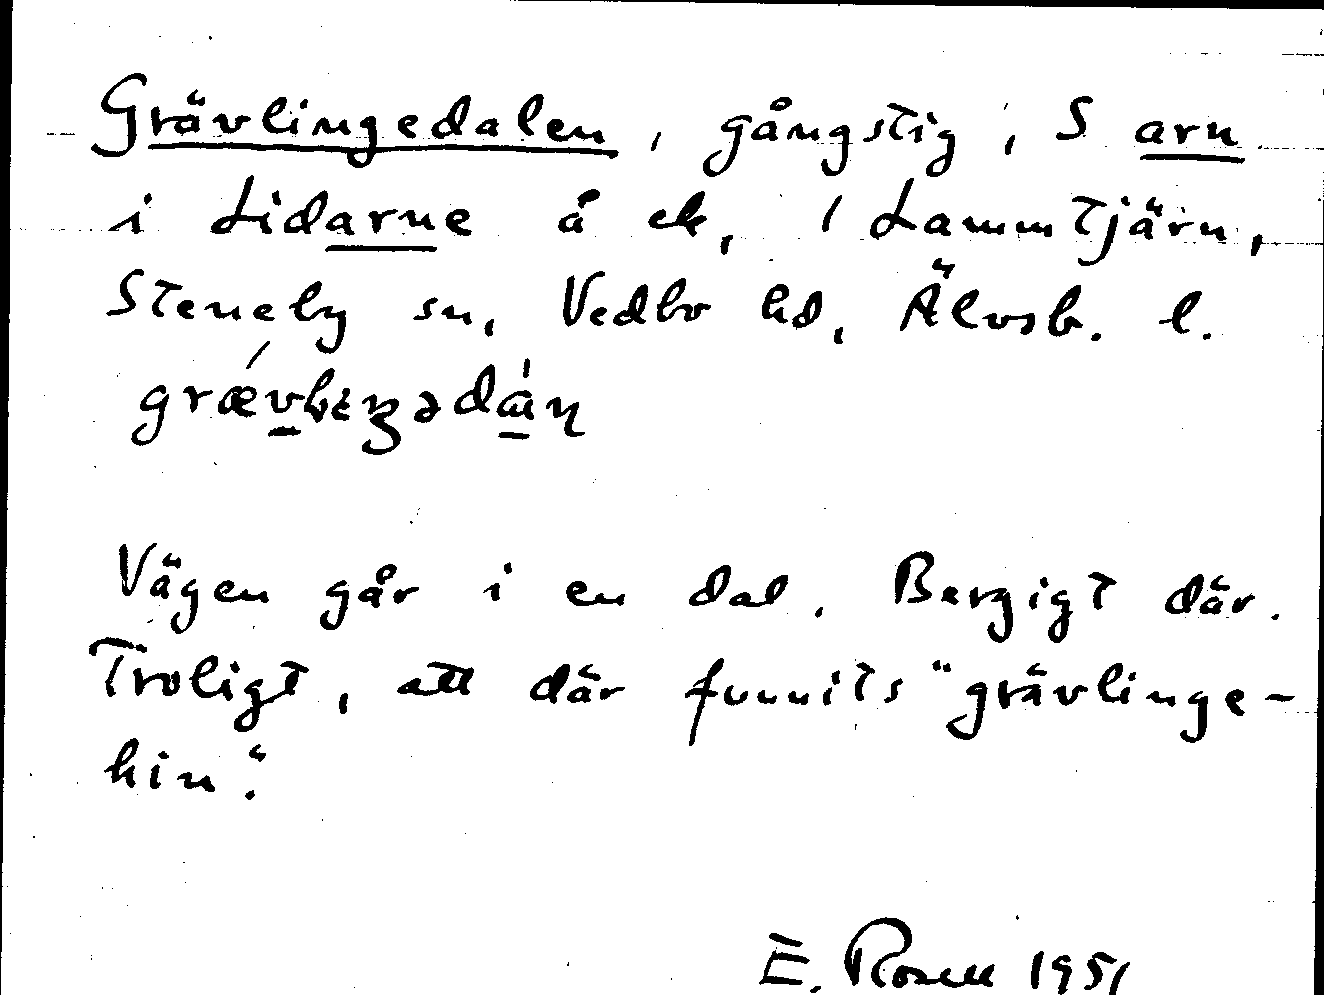 Grävlingedalen, gångstig, S arn
i Lidarne å ek, 1 Lammtjärn,
Steneby sn, Vedbo hd, Älvsb. l.
Vägen går i en dal. Bergigt där.
Troligt, att där funnits "grävlinge-
hin".
E. Rosell 1951